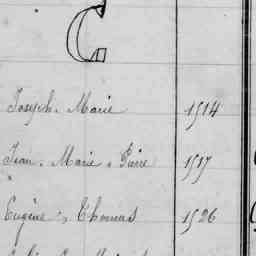 C
Joseph. Marie 1914
Jean. Marie. Pierre 1917
Eugène, Thomas 1926